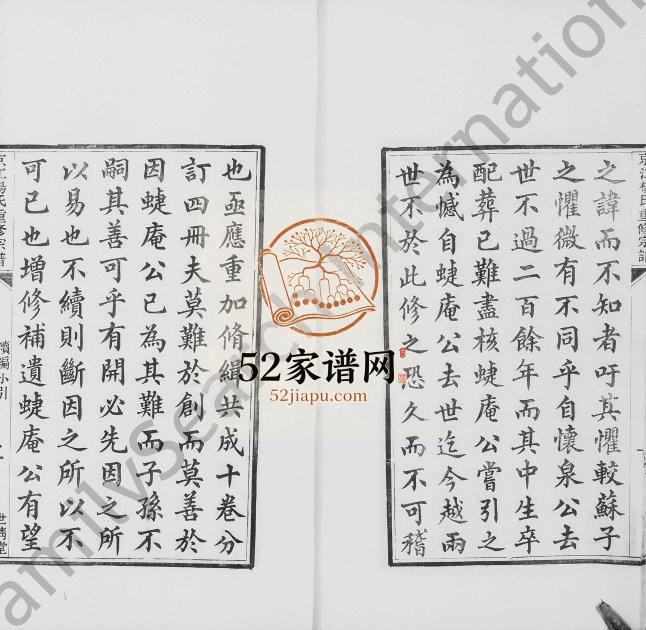 之諱而不知者吁其懼較蘇子
之懼微有不同乎自懷泉公去
世不過二百餘年而其中生卒
配葬已難盡核蜨庵公嘗引之
為憾自蜨庵公去世迄今越兩
世不於此修之恐久而不可稽
也亟應重加脩緝共成十卷分
訂四冊夫莫難於創而莫善於
因蜨庵公已為其難而子孫不
嗣其善可乎有開必先因之所
以易也不續則斷因之所以不
可已也增修補遺蜨庵公有望
京江楊氏重修宗譜
續編小引
52家谱网
52jiapu.com
FamilySearch International